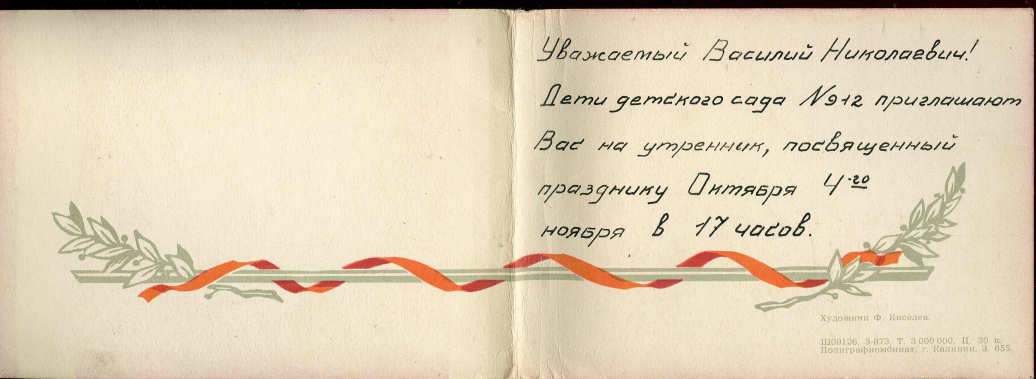 Уважаемый Василий Николаевич!
Дети детского сада №912 приглашают
Вас на утренник, посвященный
празднику Октября 4-го
ноября в 17 часов.
Художник Ф. Киселев.
Ш09126. З-873. Т. 3 000 000. Ц. 30 к.
Полиграфкомбинат, г. Калинин. З. 655.